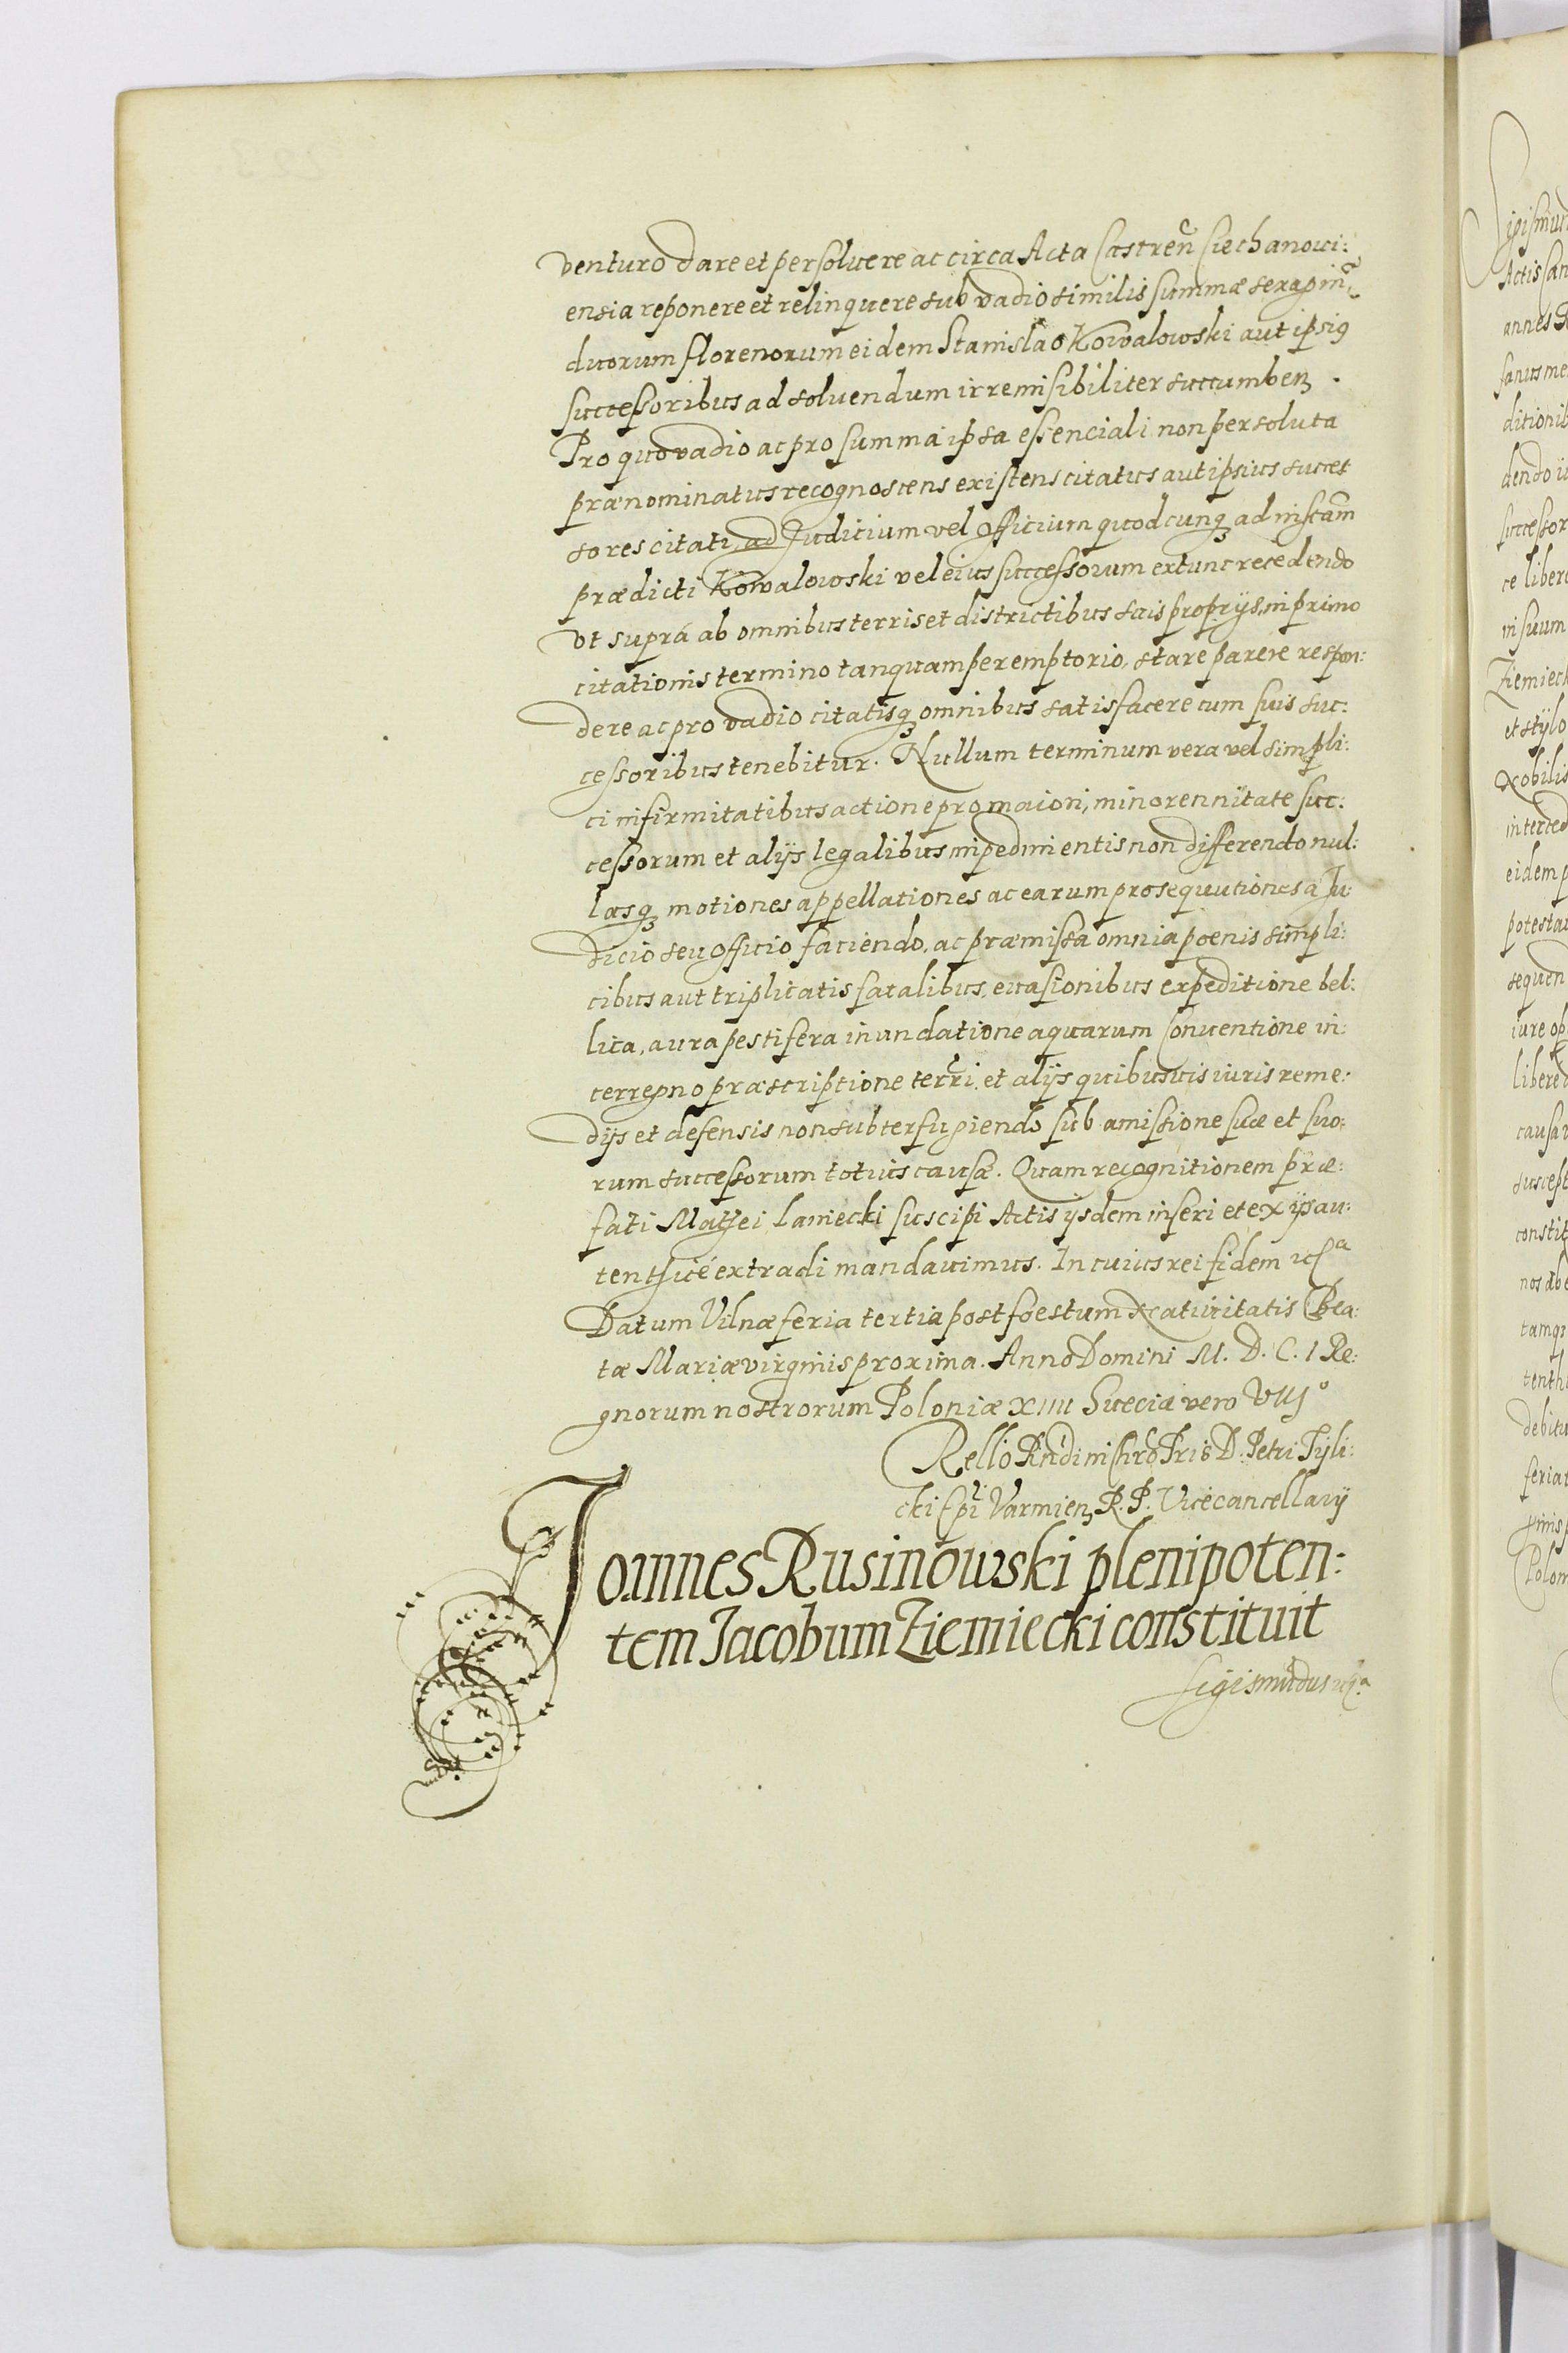 venturo dare et persoluere ac circa Acta Castren̄ Ciechanoui:
ensia reponere et relinquere sub vadio similis summæ sexagin̄
duorum florenorum eidem Stanislao Kowalowski aut ipsi9
successoribus ad soluendum irremisibiliter succumbenꝫ.
Pro quo vadio ac pro summa ipsa essenciali non persoluta
prænominatus recognoscens existens citatus aut ipsius succes
sores citati, ad Juditium vel Officium quodcunqꝫ ad instām
prædicti Kowalowski vel eius successorum extunc recedendo
vt suprá ab omnibus terris et districtibus suis proprijs, in primo
citationis termino tanquam peremptorio, stare parere respon:
dere ac pro vadio citatisqꝫ omnibus satisfacere cum suis suc:
cessoribus tenebitur. Nullum terminum vera vel simpli:
ci infirmitatibus actione pro maiori, minorennitate suc:
cessorum et alijs legalibus impedimientis non differendo nul:
lasqꝫ motiones appellationes ac earum prosequutiones a Ju:
dicio seu Officio faciendo, ac præmissa omnia poenis simpli:
cibus aut triplicatis fatalibus, euasionibus expeditione bel:
lica, aura pestifera inundatione aquarum Conuentione in:
terregno præscriptione terrī, et alijs quibusuis iuris reme:
dijs et defensis non subterfugiendo sub amissione suæ et suo:
rum successorum totius causæ. Quam recognitionem præ:
fati Mathei Laniecki suscipi Actis ijsdem inseri et ex ijs au:
tenthicé extradi mandauimus. In cuius rei fidem etc.a
Datum Vilnæ feria tertia post foestum Natiuitatis Bea:
tæ Mariæ virginis proxima. Anno Domini M. D. C. I Re:
gnorum nostrorum Poloniæ XIIII Sueciæ vero VIIJo
Rellō Rndi in Chrō Pris D. Petri Tyli:
cki Epī Varmienꝫ R. P. Vicecancellarij
Joannes Rusinowski plenipoten:
tem Jacobum Ziemiecki constituit
Sigismūdus etc.a